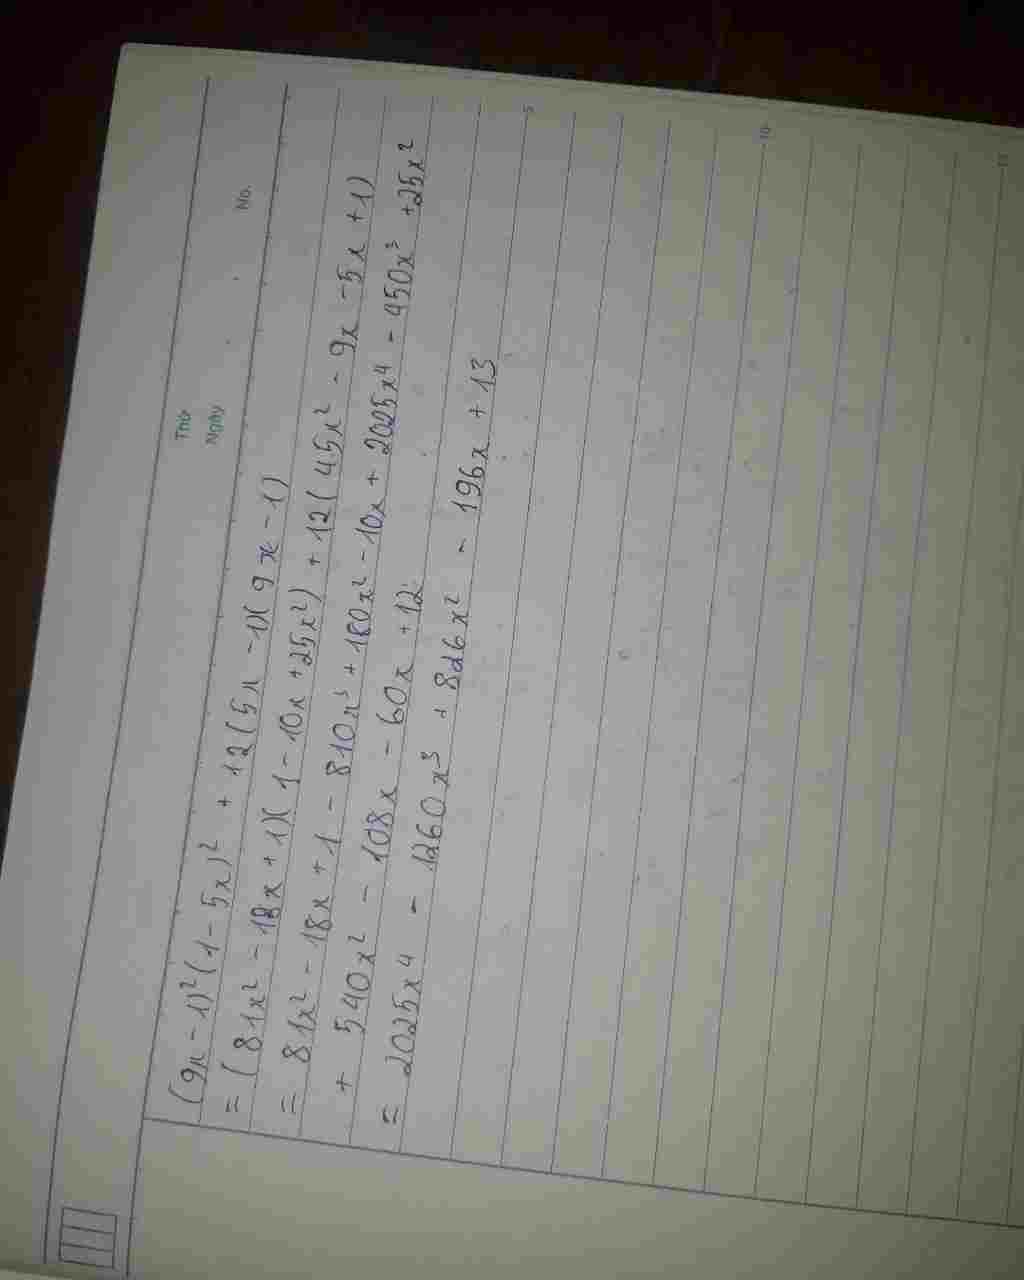 Thứ
Ngày No.
(9x - 1)²(1 - 5x)² + 12(5x - 1)(9x - 1)
= (81x² - 18x + 1)(1 - 10x + 25x²) + 12(45x² - 9x - 5x + 1)
= 81x² - 18x + 1 - 810x³ + 180x² - 10x + 2025x⁴ - 450x³ + 25x²
+ 540x² - 108x - 60x + 12
= 2025x⁴ - 1260x³ + 826x² - 196x + 13
5
10
15